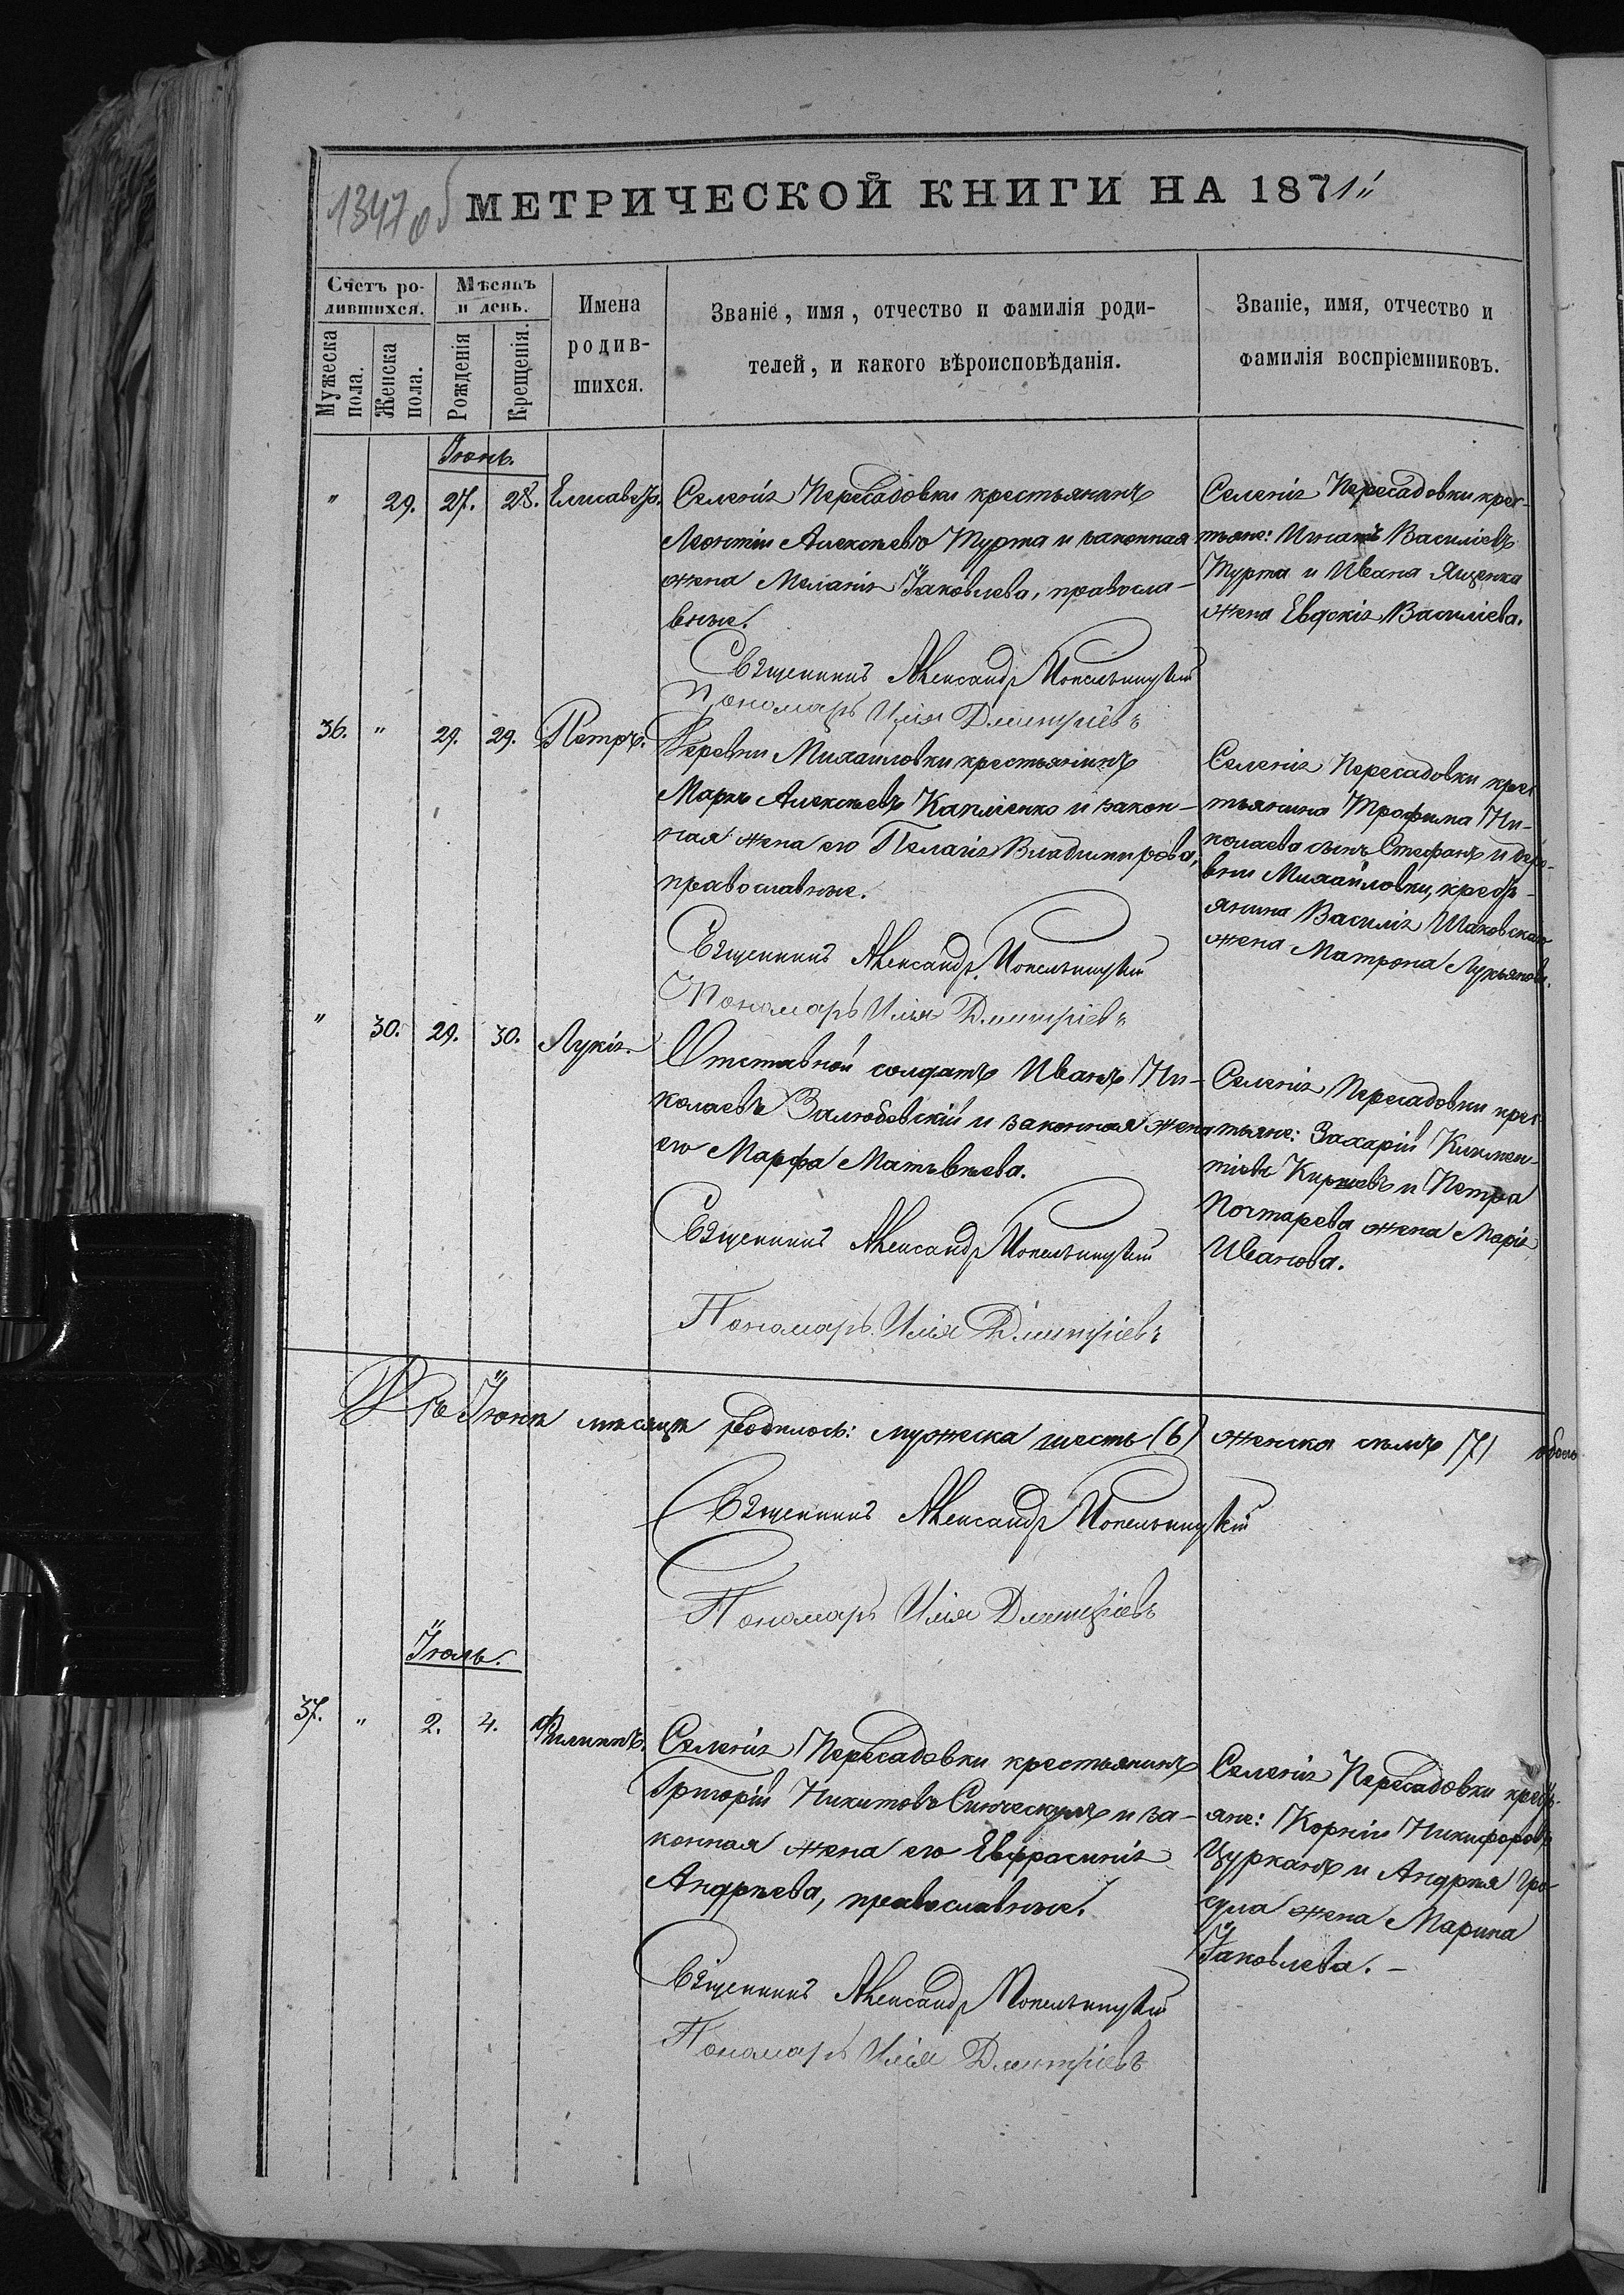 1347 об
МЕТРИЧЕСКОЙ КНИГИ НА 1871й
Счетъ ро-
дившихся.
Мужеска
пола.
Женска
пола.
Мѣсяцъ
и день.
Рожденія
Крещенія.
Имена
родив-
шихся.
Званіе, имя, отчество и фамилія роди-
телей, и какого вѣроисповѣданія.
Званіе, имя, отчество и
фамилія воспріемниковъ.
Іюнь.
" 29. 27. 28. Елисавета.
Селенія Пересадовки крестьянинъ
Леонтій Алексѣевъ Турта и законная
жена Меланія Іаковлева, правосла-
вные.
Священникъ Александр
Пономарь Илія Димитріевъ
Селенія Пересадовки крес-
тьяне: Игнатъ Василіевъ
Турта и Ивана Яценка
жена Евдокія Василіева.
36. " 29. 29. Петръ.
Деревни Михайловки крестьянинъ
Маркъ Алексѣевъ Каплienко и закон-
ная жена его Пелагія Владимирова,
православные.
Священникъ Александр
Пономарь Илія Димитріевъ
Селенія Пересадовки крес
тьянина Трофима Ни-
колаева сынъ Стефанъ и дере-
вни Михайловки, кресть-
янина Василія Шаховскаго
жена Матрона Лукьянова.
" 30. 29. 30. Лукія.
Отставной солдатъ Иванъ Ни-
колаевъ Залюбовскій и законная жена
его Марфа Матѳѣева.
Священникъ Александр
Пономарь Илія Димитріевъ
Селенія Пересадовки крес
тьяне: Захарій Климен-
тіевъ и Петра
Почтарева жена Марія
Иванова.
Въ Іюнѣ мѣсяцѣ родилось: мужеска шесть (6) женска семь (7) обоего
Священникъ Александр
Пономарь Илія Димитріевъ
Іюль.
37. " 2. 4. Филиппъ.
Селенія Пересадовки крестьянинъ
Григорій Никитовъ и за-
конная жена его Евфросинія
Андрѣева, православные.
Священникъ Александр
Пономарь Илія Димитріевъ
Селенія Пересадовки кресть-
яне: Корній Никифоровъ
Цурканъ и Андрея
жена Марина
Іаковлева. –